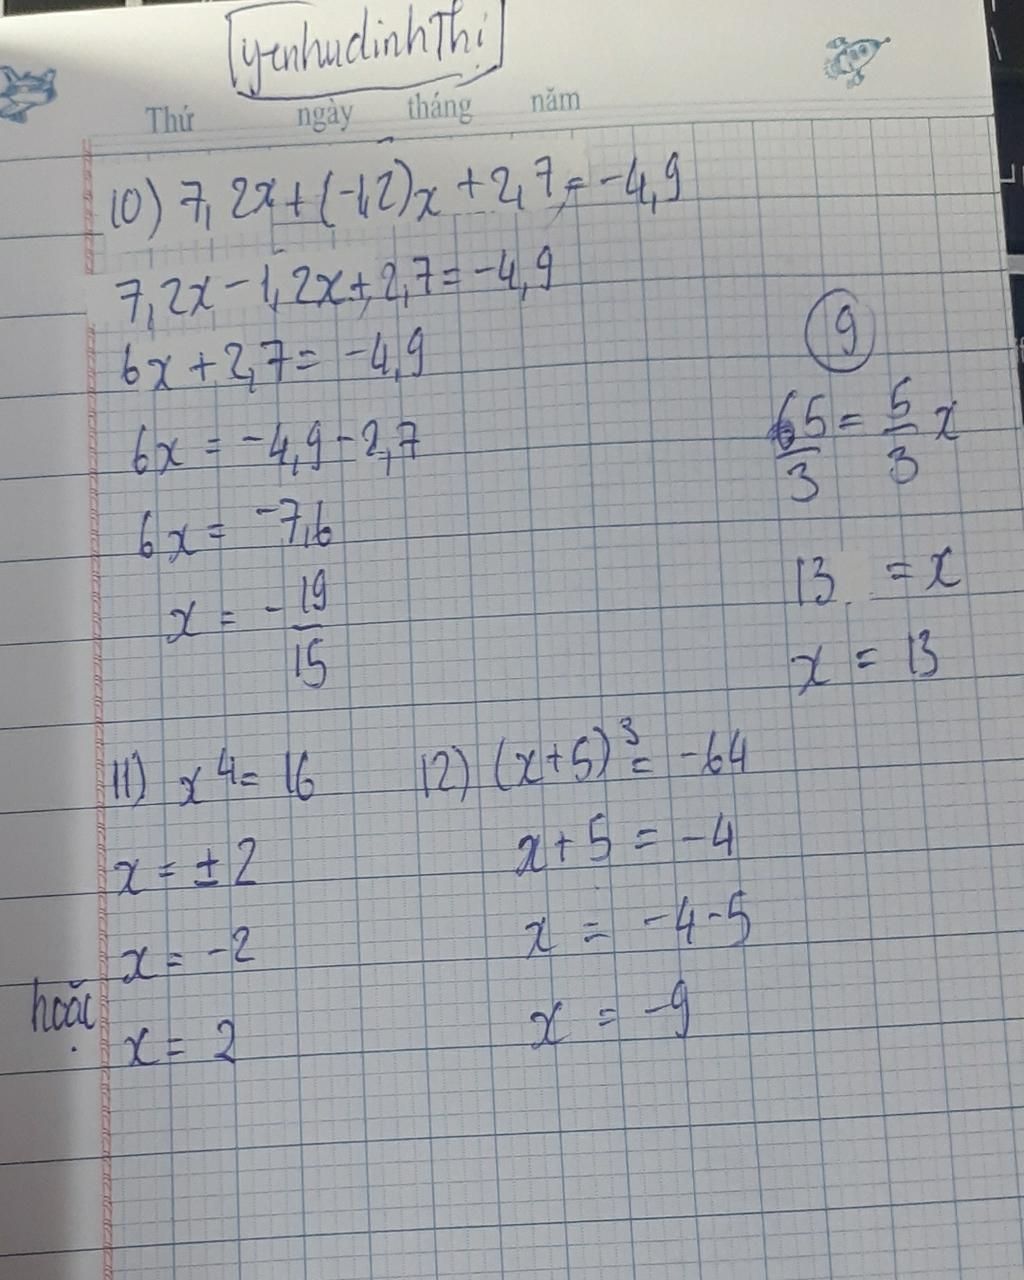 yenhudinhThi
Thứ ngày tháng năm
10) 7,2x+(-1,2)x+2,7=-4,9
7,2x-1,2x+2,7=-4,9
6x+2,7=-4,9
6x=-4,9-2,7
6x=-7,6
x=-19/15
9
65/3=5/3x
13=x
x=13
11) x⁴=16
x=±2
x=-2
hoặc
x=2
12) (x+5)³=-64
x+5=-4
x=-4-5
x=-9